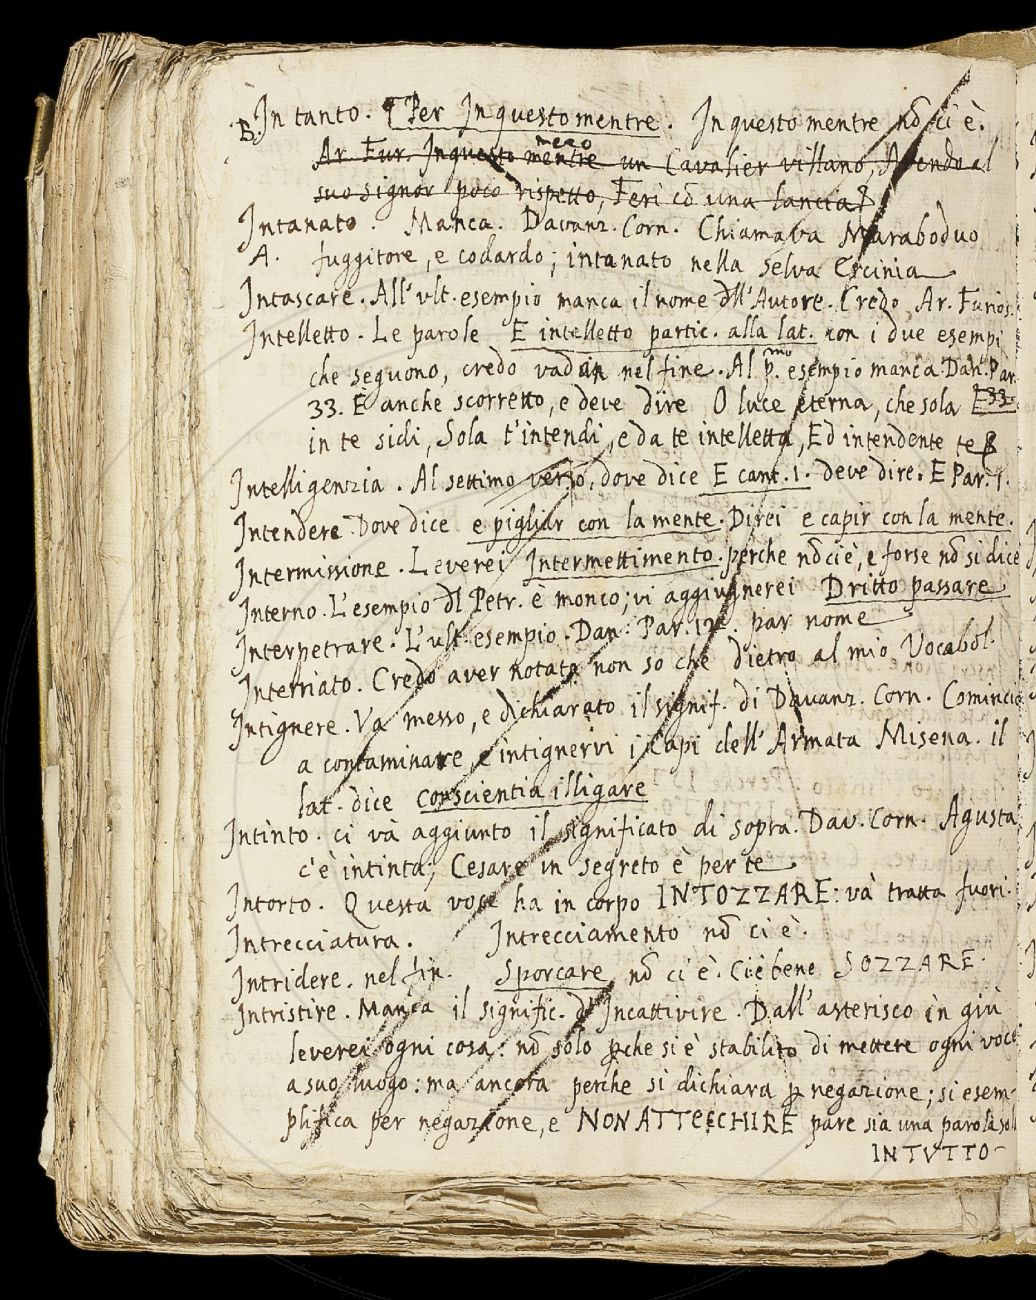 B. In tanto. Per In questo mentre. In questo mentre nõ ci è.
Ar. Fur. In questo mezo mentre un Cavalier villano, Avendo al
suo signor poco rispetto, Ferì cõ una lancia
Intanato. Manca. Davanz. Corn. Chiamava Maraboduo
A. fuggitore, e codardo; intanato nella selva Ercinia
Intascare. All' ult. esempio manca il nome dll' Autore. Credo Ar. Furios.
Intelletto. Le parole E intelletto partic. alla lat. con i due esempi
che seguono, credo vadan nel fine. Al p.mo esempio manca Dan. Par.
33. E anche scorretto, e deve dire O luce eterna, che sola
in te sidi, Sola t'intendi, e da te intelletta, Ed intendente te
Intelligenzia. Al settimo verso, dove dice E cant. 1. deve dire. E Par. 1.
Intendere. Dove dice e pigliar con la mente. Direi e capir con la mente.
Intermissione. Leverei Intermettimento. perche nõ ci è, e forse nõ si dice
Interno. L'esempio dl Petr. è monco; vi aggiugnerei Dritto passare
Interpetrare. L'ult. esempio. Dan. Par. 12. par nome
Interriato. Credo aver notata non so che dietro al mio Vocabol.
Intignere. Va messo, e dichiarato il signif. di Davanz. Corn. Cominciò
a contaminare, e intignervi i Capi dell' Armata Misena. il
lat. dice conscientia illigare
Intinto. ci và aggiunto il significato di sopra. Dav. Corn. Agusta
c'è intinta; Cesare in segreto è per te
Intorto. Questa voce ha in corpo INTOZZARE: và tratta fuori.
Intrecciatura. Intrecciamento nõ ci è.
Intridere. nel fin. Sporcare nõ ci è. Ciè bene SOZZARE.
Intristire. Manca il signific. d' Incattivire. Dall' asterisco in giù
leverei ogni cosa: nõ solo pche si è stabilito di mettere ogni voce
a suo luogo: ma ancora perche si dichiara p negazione; si esem-
plifica per negazione, e NON ATTECCHIRE pare sia una parola sol
INTVTTO-